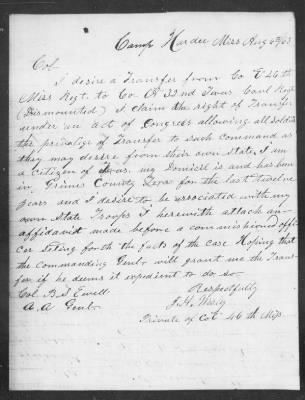 Camp Hardee Miss Aug 6th/63
Col.
I desire a Transfer from Co E 46th
Miss Regt. to Co. A 32nd Texas Cavl Regt
(Dismounted) I claim the right of Transfer
under an act of Congress allowing all soldiers
the privalige of Transfer to such command as
they may desire from their own state, I am
a citizen of Texas. my Domicil is and has been
in Grimes County Texas for the last twelve
years and I desire to be associated with my
own State Troops I herewith attach an
affidavit made before a commissioned offi-
cer seting forth the facts of the case Hoping that
the commanding Genl- will grant me the Trans-
fer if he deems it expedient to do so-
Col. B. S. Ewell Respectfully
A. A Genl- J. H.
Private of Co E 46th Miss